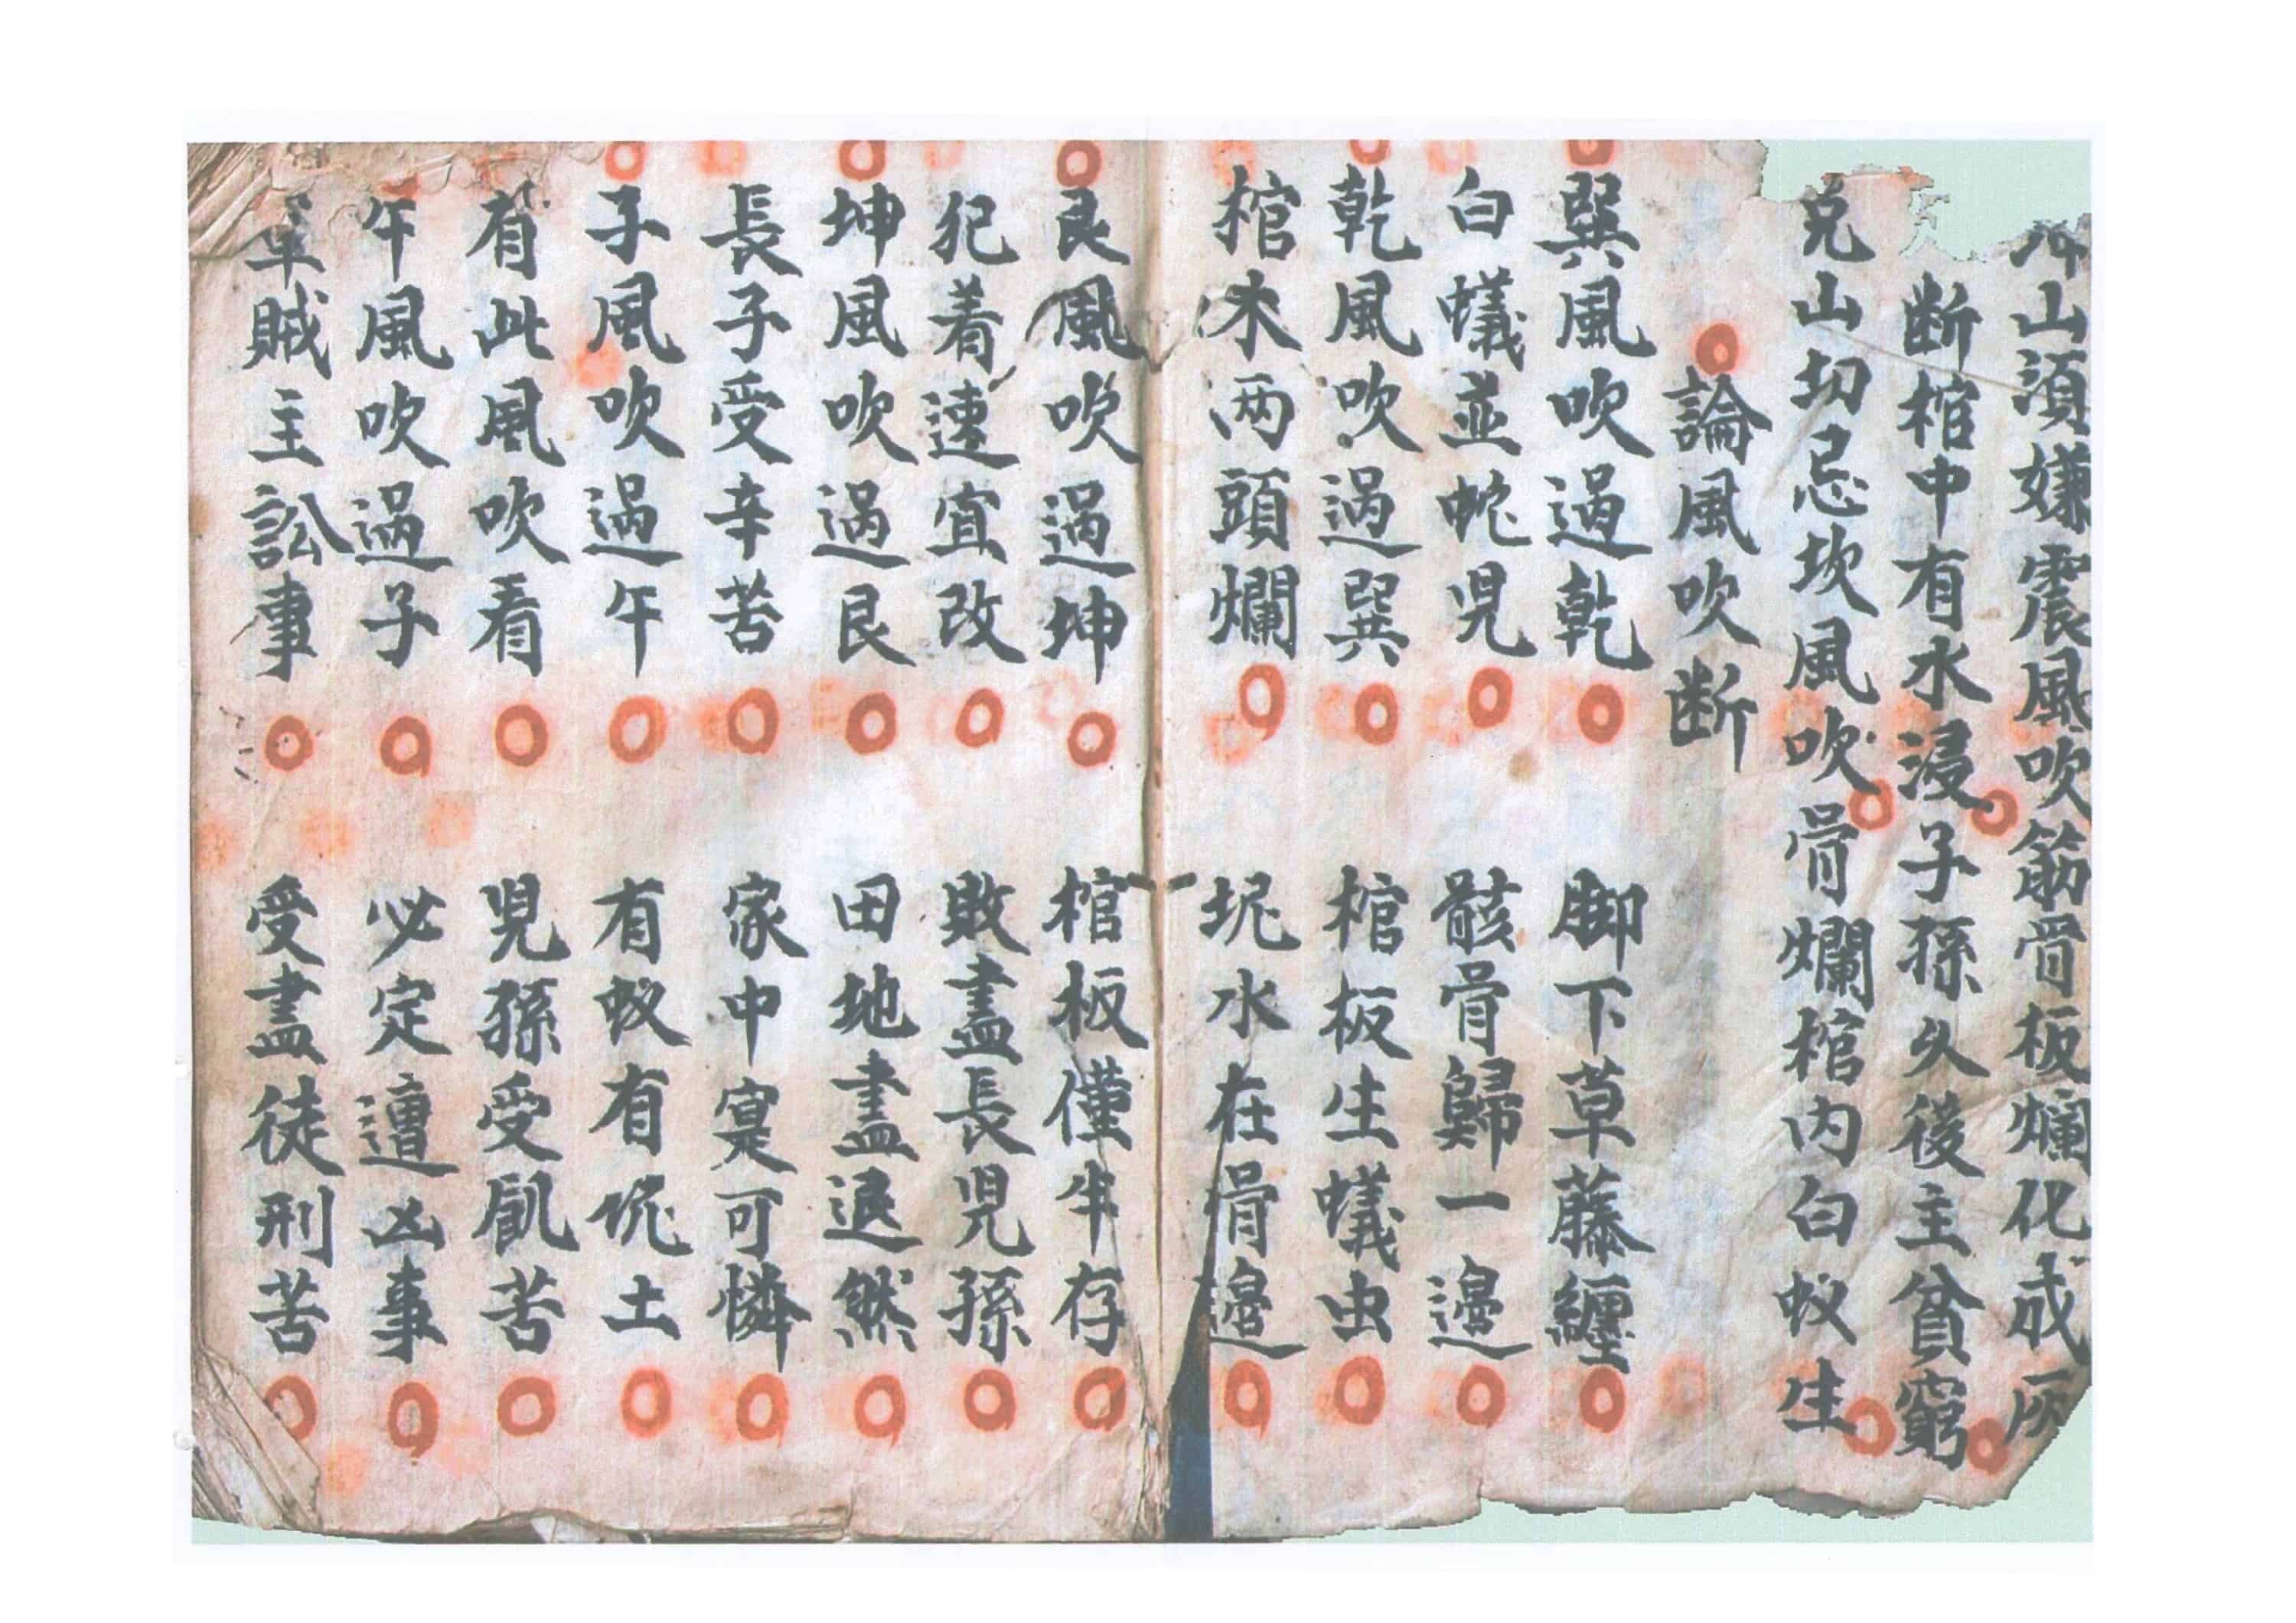 山須嫌震風吹筋骨板爛化成灰
断棺中有水浸子孫久後主貧窮
兌山切忌坎風吹骨爛棺内白蚁生
論風吹断
巽風吹過乾 脚下草藤纒
白蟻並蛇児 骸骨歸一邉
乾風吹過巽 棺板生蟻虫
棺木两頭爛 坭水在骨邉
艮風吹過坤 棺板僅半存
犯着速宜改 敗盡長児孫
坤風吹過艮 田地盡退然
長子受辛苦 家中寔可憐
子風吹過午 有蚁有坭土
有此風吹看 児孫受飢苦
午風吹過子 必定遭凶事
軍賊主訟事 受盡徒刑苦